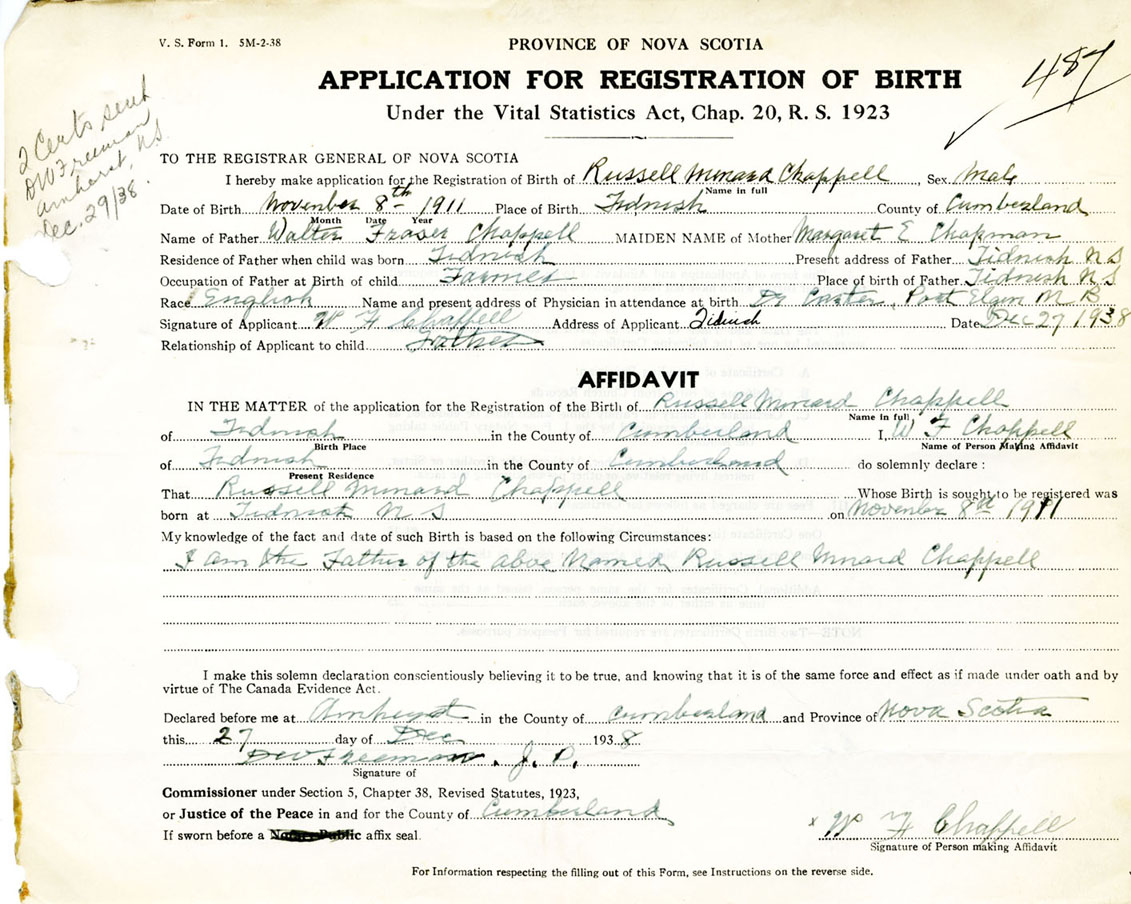 V. S. Form 1. 5M-2-38
PROVINCE OF NOVA SCOTIA
487
APPLICATION FOR REGISTRATION OF BIRTH
Under the Vital Statistics Act, Chap. 20, R. S. 1923
2 Certs sent
DW Freeman
Amherst, N.S.
Dec. 29/38.
TO THE REGISTRAR GENERAL OF NOVA SCOTIA
I hereby make application for the Registration of Birth of Russell Minard Chappell, Sex Male
Name in full
Date of Birth November 8th 1911 Place of Birth Tidnish County of Cumberland
Month Date Year
Name of Father Walter Fraser Chappell MAIDEN NAME of Mother Margaret E Chapman
Residence of Father when child was born Tidnish Present address of Father Tidnish N S
Occupation of Father at Birth of child Farmer Place of birth of Father Tidnish N S
Race English Name and present address of Physician in attendance at birth Dr Carter, Port Elgin N B
Signature of Applicant W F Chappell Address of Applicant Tidnish Date Dec 27 1938
Relationship of Applicant to child Father
AFFIDAVIT
IN THE MATTER of the application for the Registration of the Birth of Russell Minard Chappell
Name in full
of Tidnish in the County of Cumberland I, W F Chappell
Birth Place Name of Person Making Affidavit
of Tidnish in the County of Cumberland do solemnly declare :
Present Residence
That Russell Minard Chappell Whose Birth is sought to be registered was
born at Tidnish N S on November 8th 1911
My knowledge of the fact and date of such Birth is based on the following Circumstances:
I am the Father of the above Named Russell Minard Chappell
I make this solemn declaration conscientiously believing it to be true, and knowing that it is of the same force and effect as if made under oath and by
virtue of The Canada Evidence Act.
Declared before me at Amherst in the County of Cumberland and Province of Nova Scotia
this 27 day of Dec 1938
DW Freeman. J. P.
Signature of
Commissioner under Section 5, Chapter 38, Revised Statutes, 1923,
or Justice of the Peace in and for the County of Cumberland
If sworn before a Notary Public affix seal.
x W F Chappell
Signature of Person making Affidavit
For Information respecting the filling out of this Form, see Instructions on the reverse side.